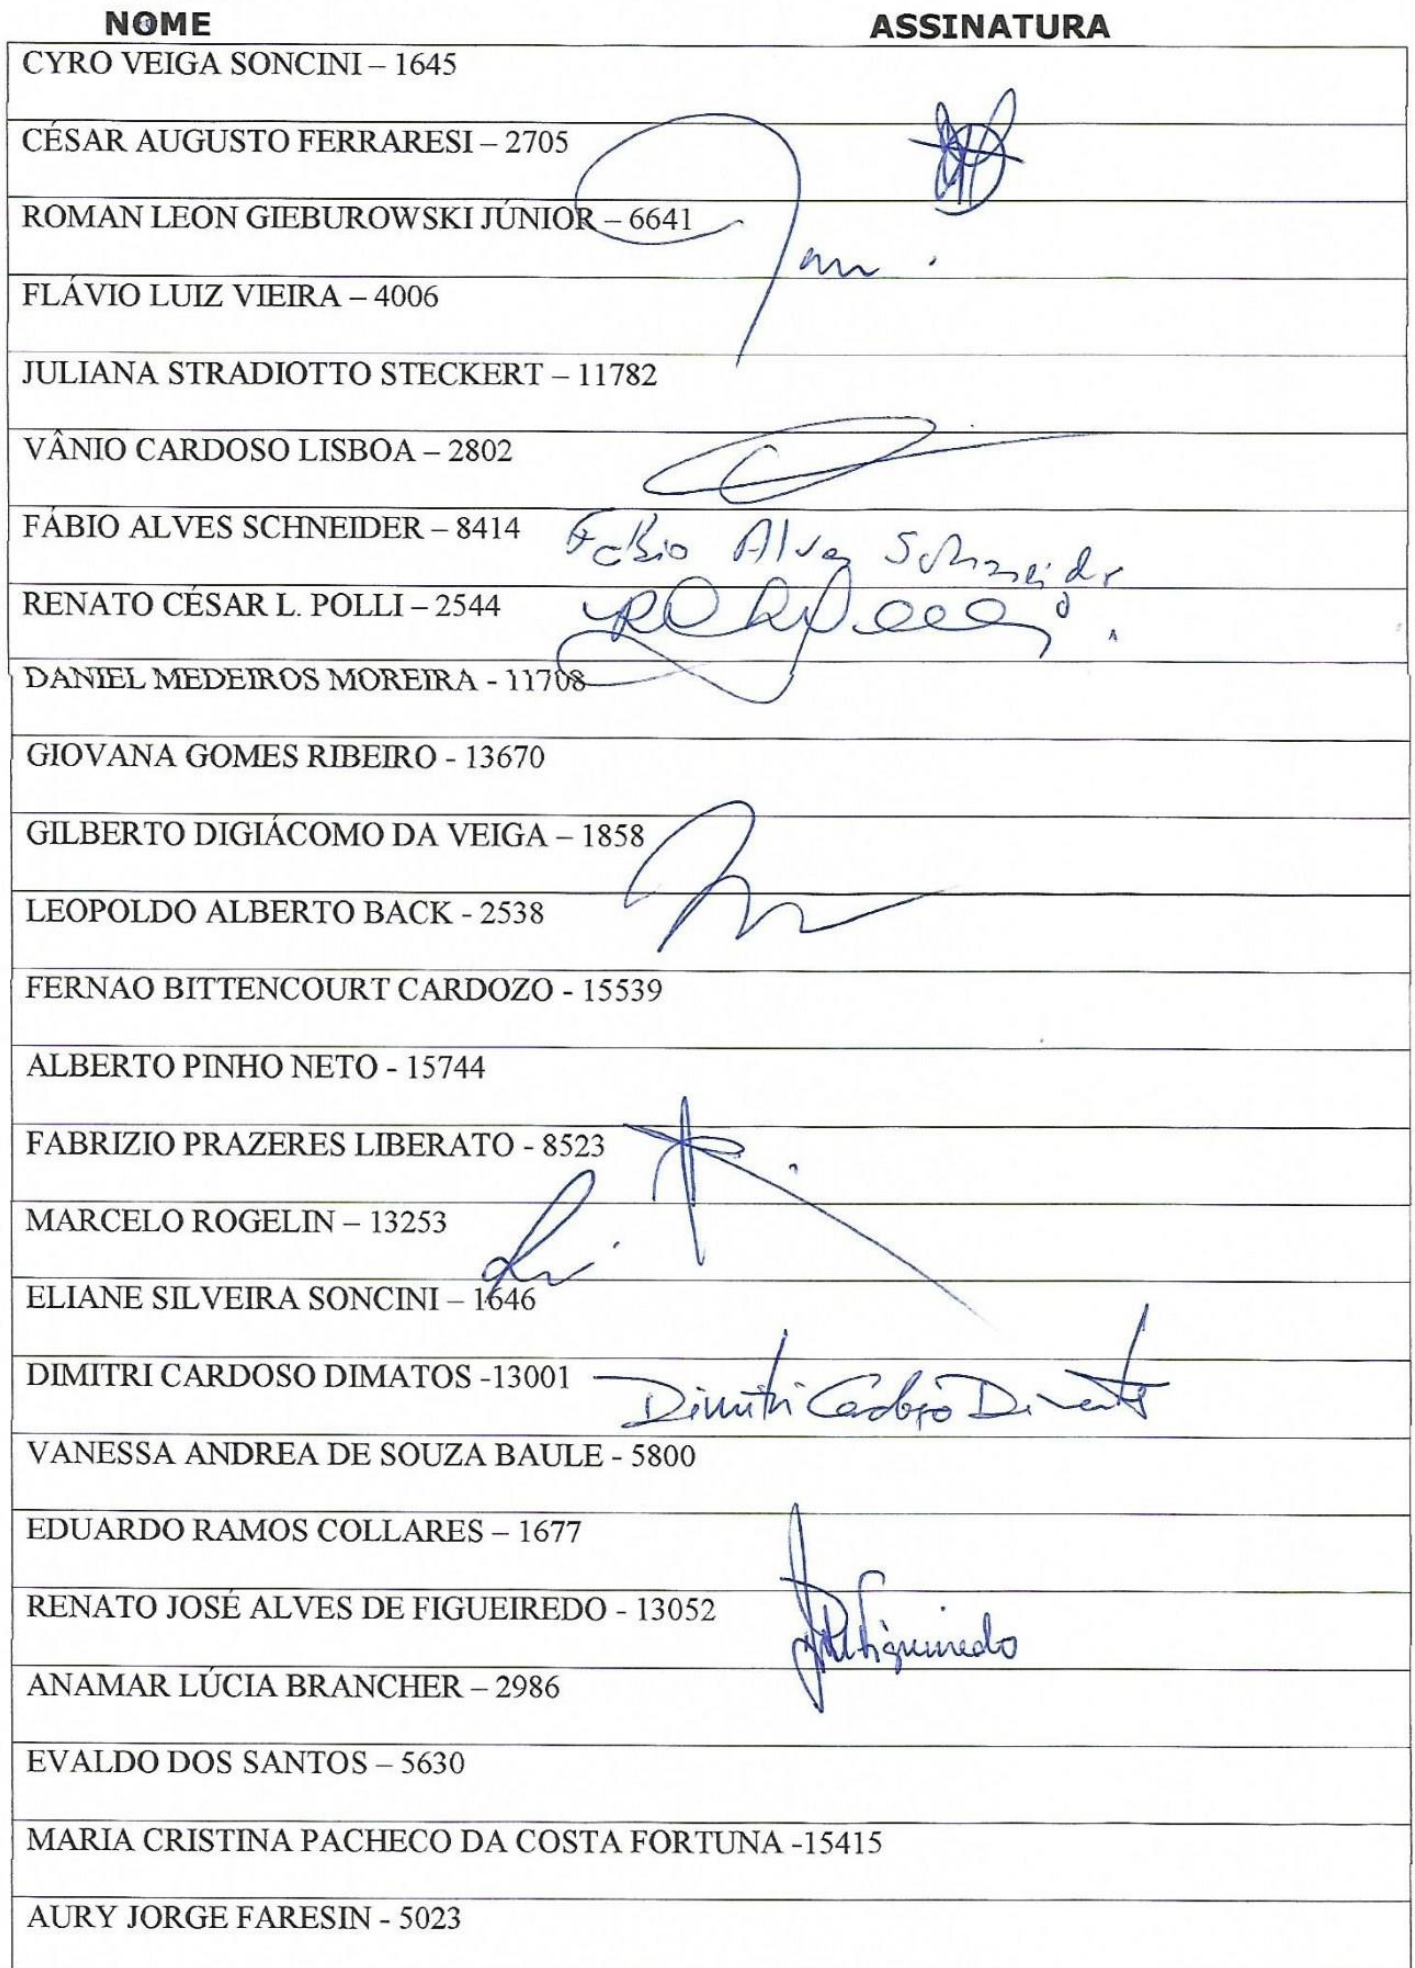 NOME ASSINATURA
CYRO VEIGA SONCINI – 1645
CÉSAR AUGUSTO FERRARESI – 2705
ROMAN LEON GIEBUROWSKI JÚNIOR – 6641
FLÁVIO LUIZ VIEIRA – 4006
JULIANA STRADIOTTO STECKERT – 11782
VÂNIO CARDOSO LISBOA – 2802
FÁBIO ALVES SCHNEIDER – 8414 Fabio Alves Schneider
RENATO CÉSAR L. POLLI – 2544
DANIEL MEDEIROS MOREIRA - 11708
GIOVANA GOMES RIBEIRO - 13670
GILBERTO DIGIÁCOMO DA VEIGA – 1858
LEOPOLDO ALBERTO BACK - 2538
FERNAO BITTENCOURT CARDOZO - 15539
ALBERTO PINHO NETO - 15744
FABRIZIO PRAZERES LIBERATO - 8523
MARCELO ROGELIN – 13253
ELIANE SILVEIRA SONCINI – 1646
DIMITRI CARDOSO DIMATOS -13001 Dimitri Cardoso Dimatos
VANESSA ANDREA DE SOUZA BAULE - 5800
EDUARDO RAMOS COLLARES – 1677
RENATO JOSÉ ALVES DE FIGUEIREDO - 13052 Figueiredo
ANAMAR LÚCIA BRANCHER – 2986
EVALDO DOS SANTOS – 5630
MARIA CRISTINA PACHECO DA COSTA FORTUNA -15415
AURY JORGE FARESIN - 5023